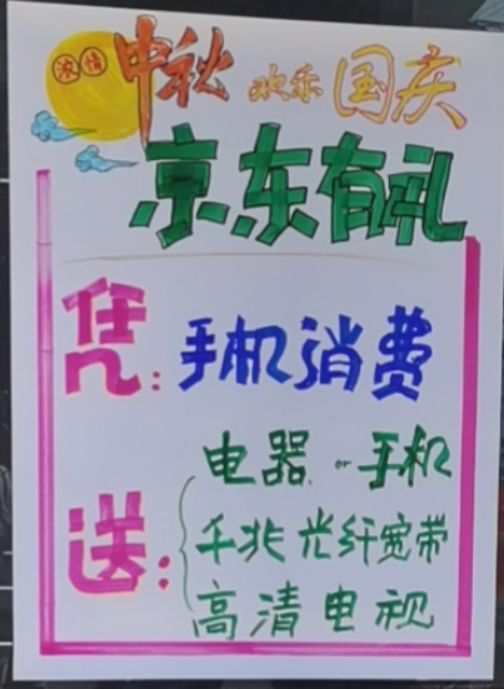 浓情中秋 欢乐国庆
京东有礼
凭：手机消费
电器 or 手机
送：千兆光纤宽带
高清电视